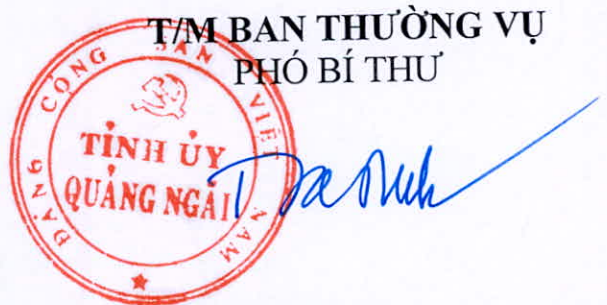 T/M BAN THƯỜNG VỤ
PHÓ BÍ THƯ
ĐẢNG CỘNG SẢN VIỆT NAM
TỈNH ỦY
QUẢNG NGÃI